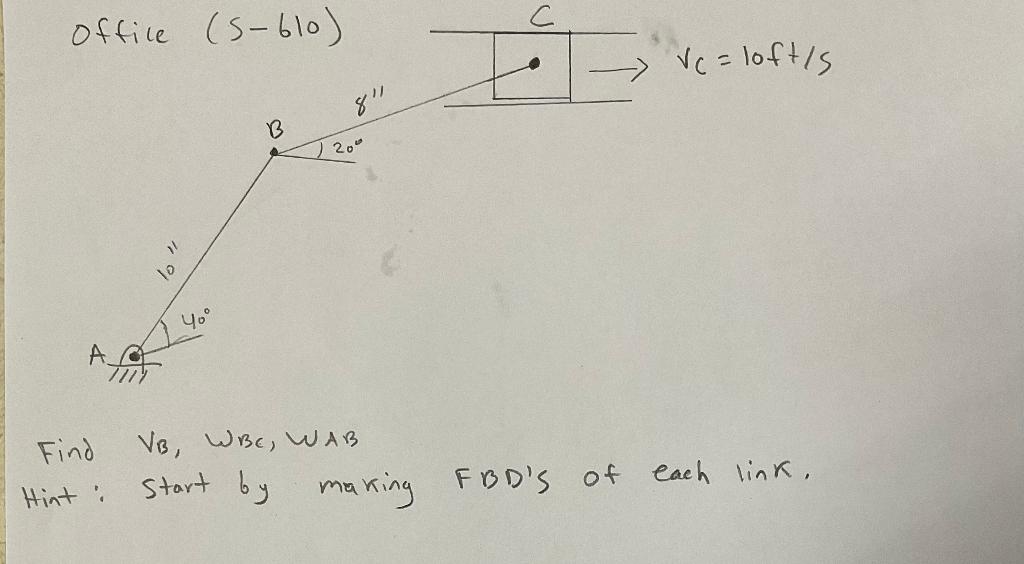 Office (S-610)
C
VC = 10ft/s
8"
B
20°
10"
40°
A
Find VB, WBC, WAB
Hint: Start by making FBD's of each link.